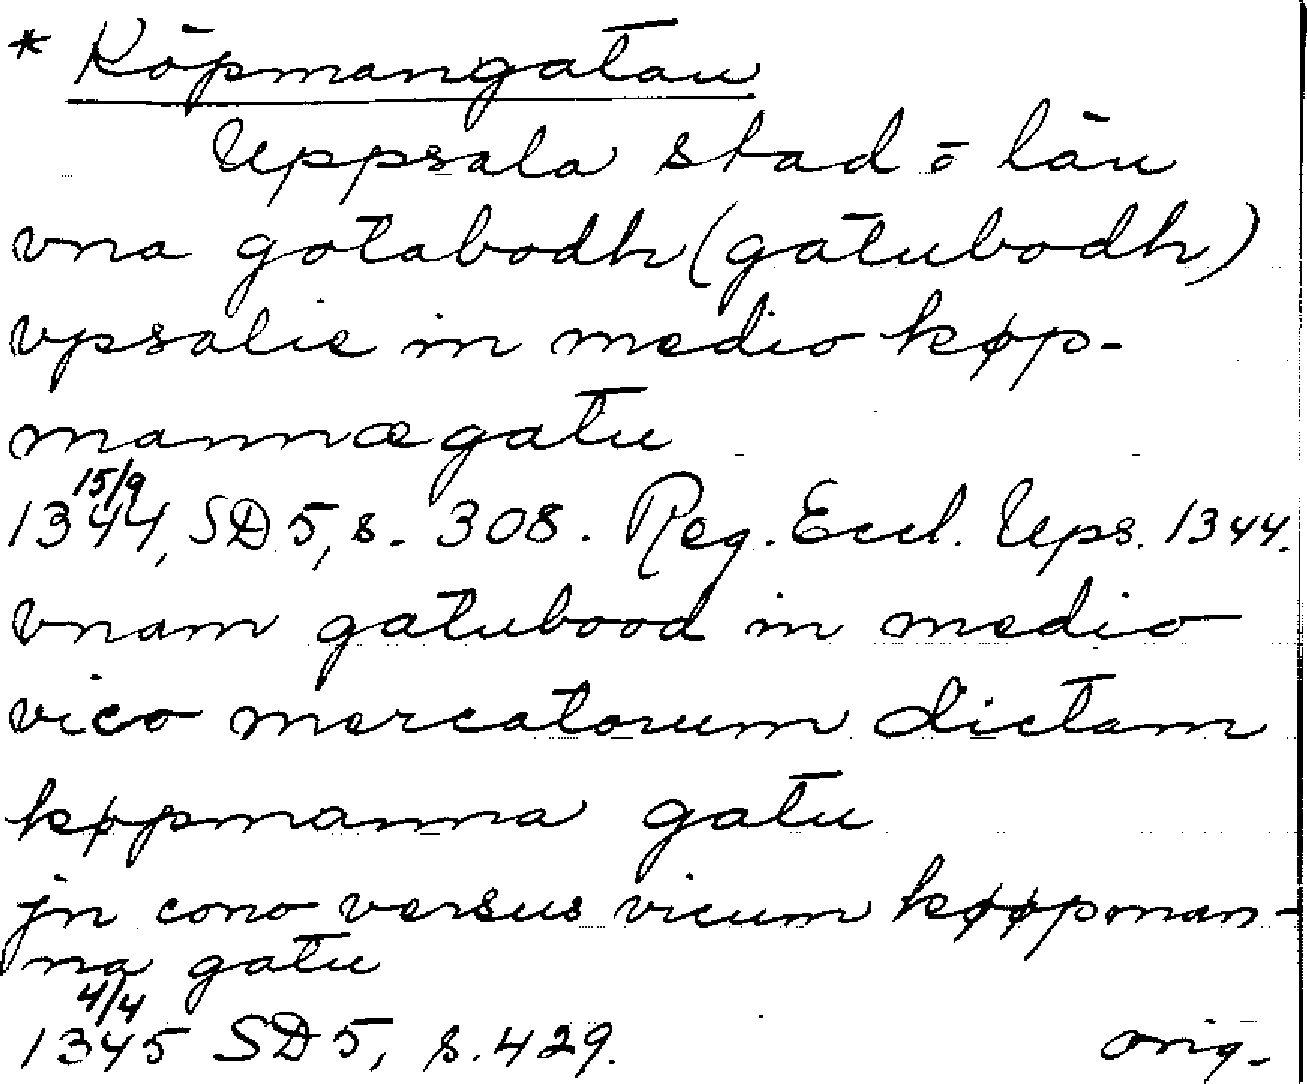 * Köpmangatan
Uppsala stad o län
vna gatabodh (gatubodh)
vpsalie in medio køp-
mannægatu
1344 15/9, SD 5, s. 308. Reg. Eccl. Ups. 1344.
vnam gatubood in medio
vico mercatorum dictam
køpmanna gatu
jn cono versus vicum køøpman-
na gatu
1345 4/4 SD 5, s. 429. orig.